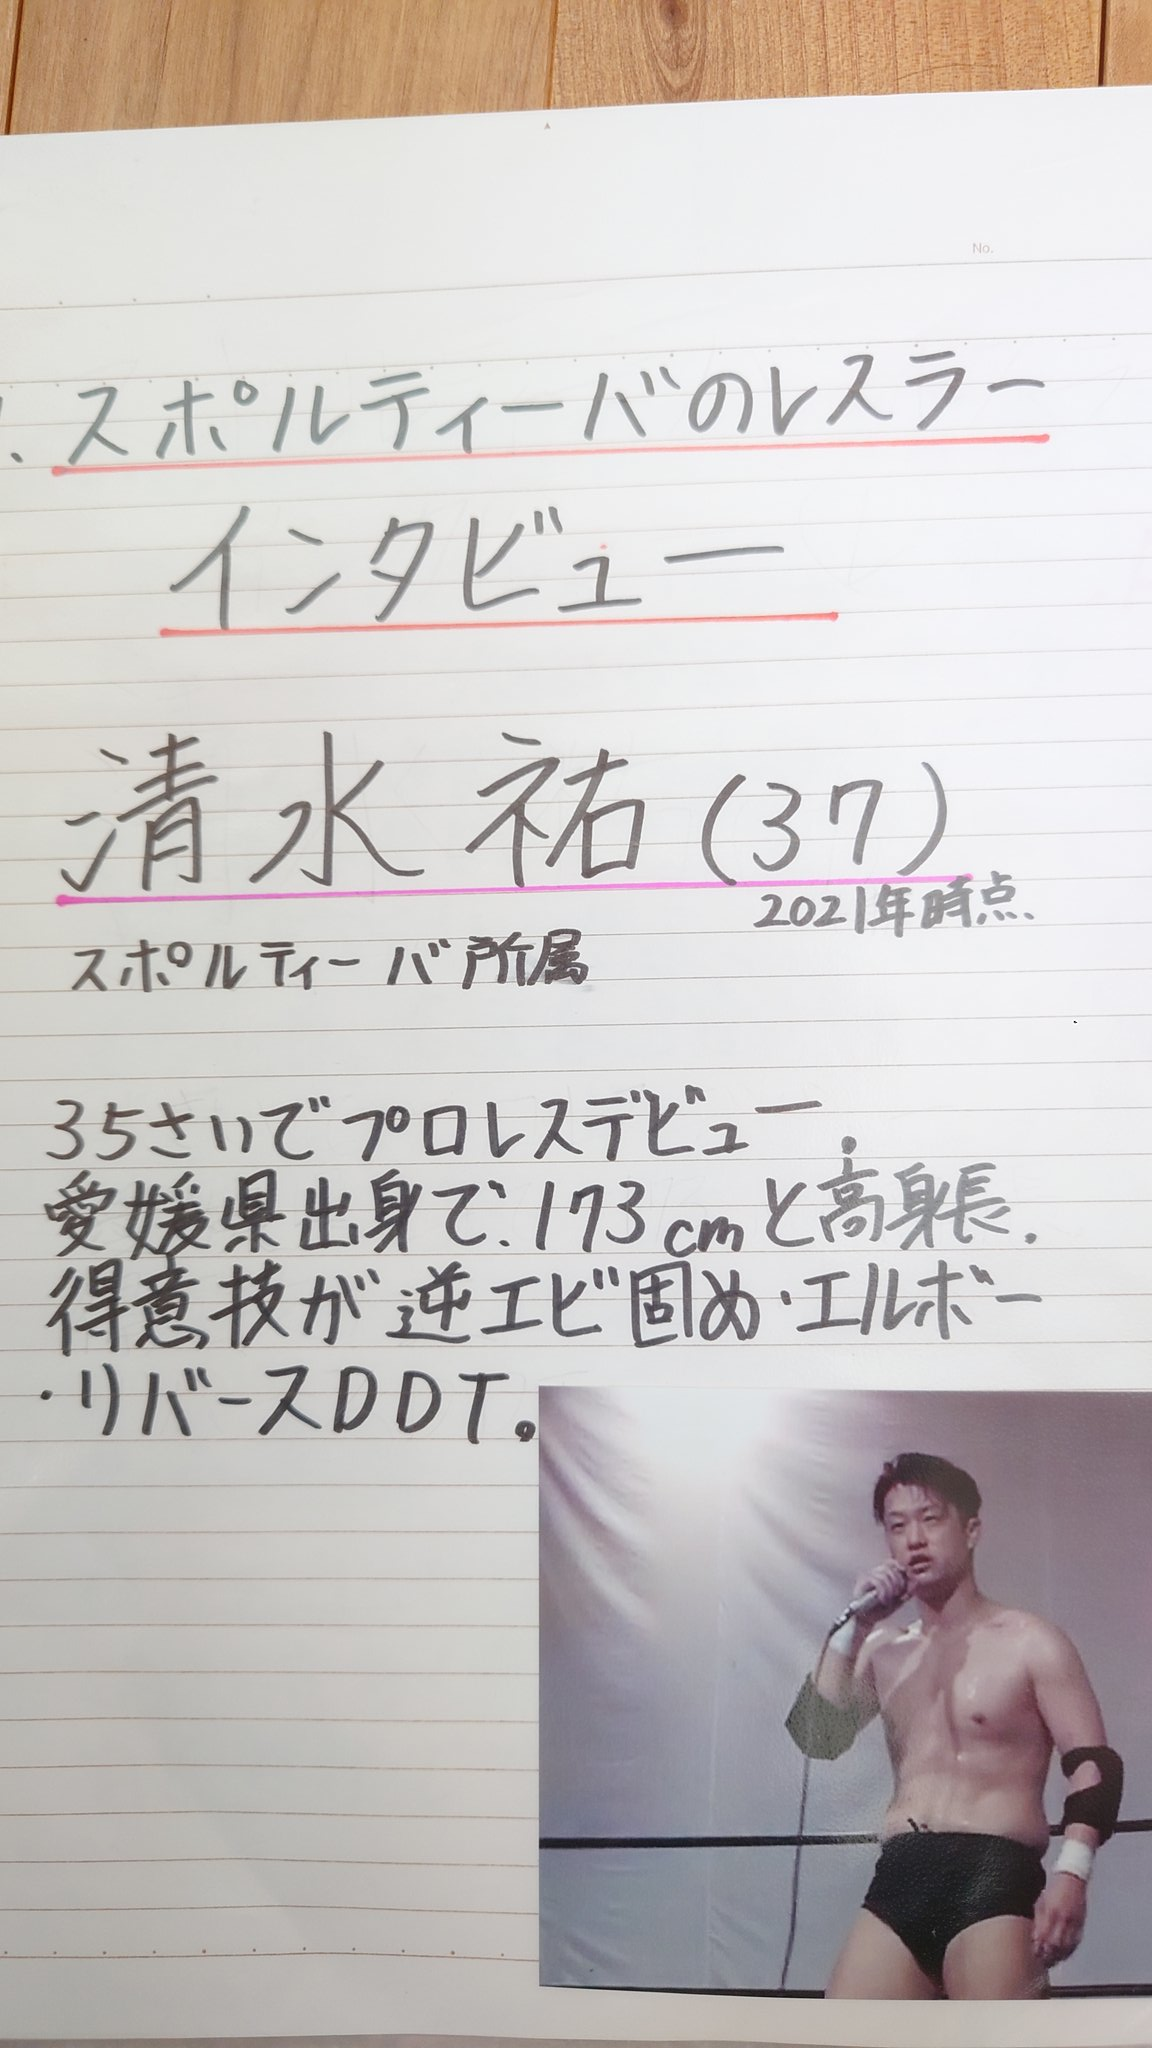 No.
1.スポルティーバのレスラー
インタビュー
清水 祐(37)
2021年時点.
スポルティーバ所属
35さいでプロレスデビュー.
愛媛県出身で、173cmと高身長.
得意技が逆エビ固め・エルボー
・リバースDDT。